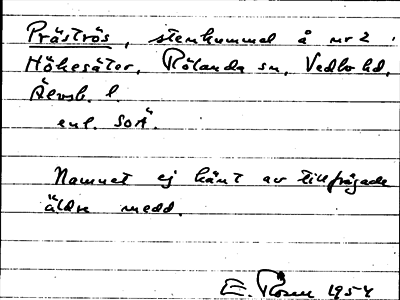 Präströs, stenkummel å nr 2
Hökesäter, Rölanda sn, Vedbo hd,
Älvsb. l.
enl. SOÄ.
Namnet ej känt av tillfrågade
äldre medd.
E. Rosen 1954